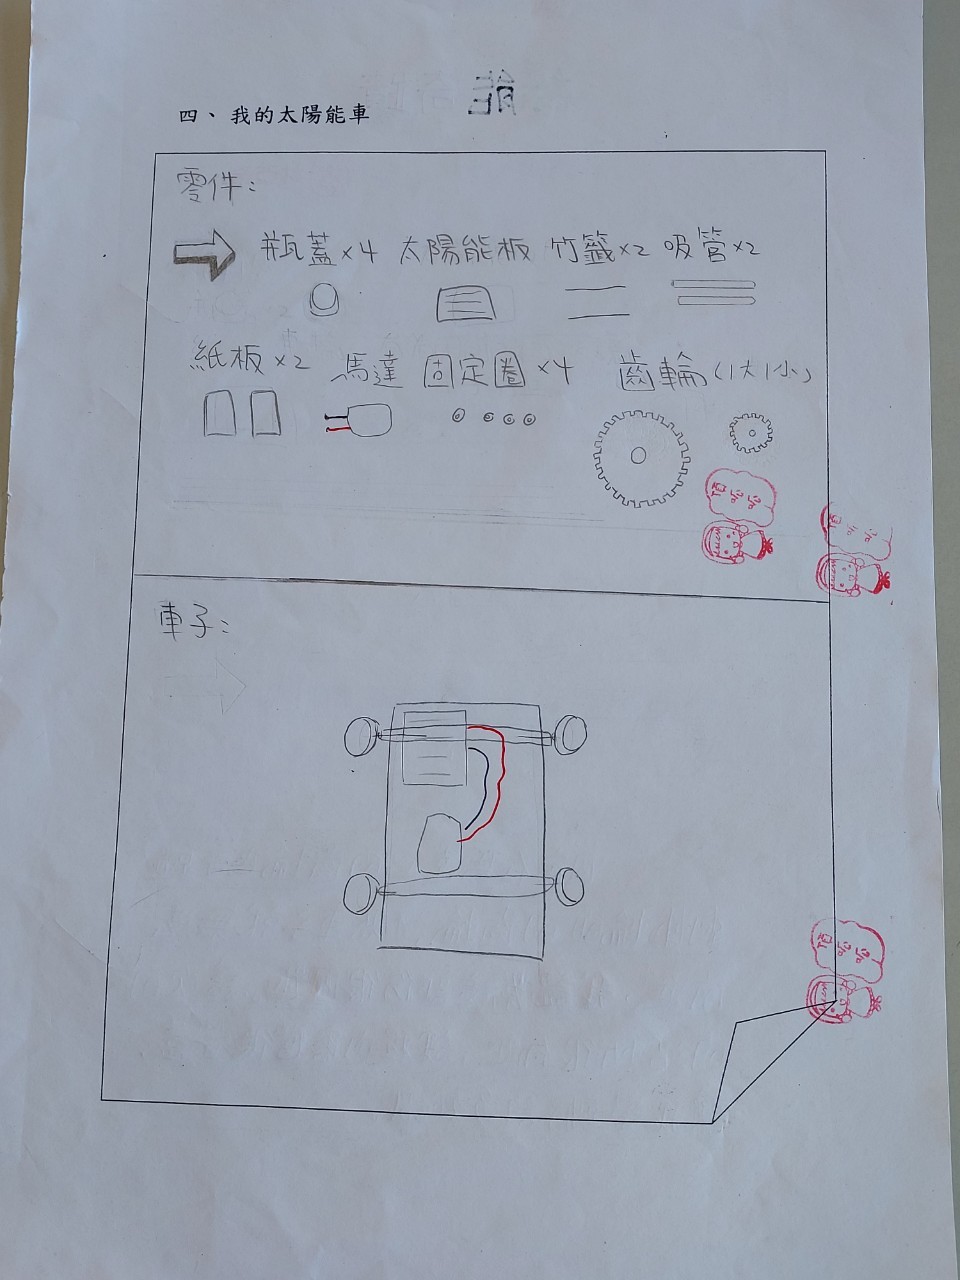 能
四、我的太陽能車
零件：
瓶蓋×4 太陽能板 竹籤×2 吸管×2
紙板×2 馬達 固定圈×4 齒輪（1大1小）
車子：